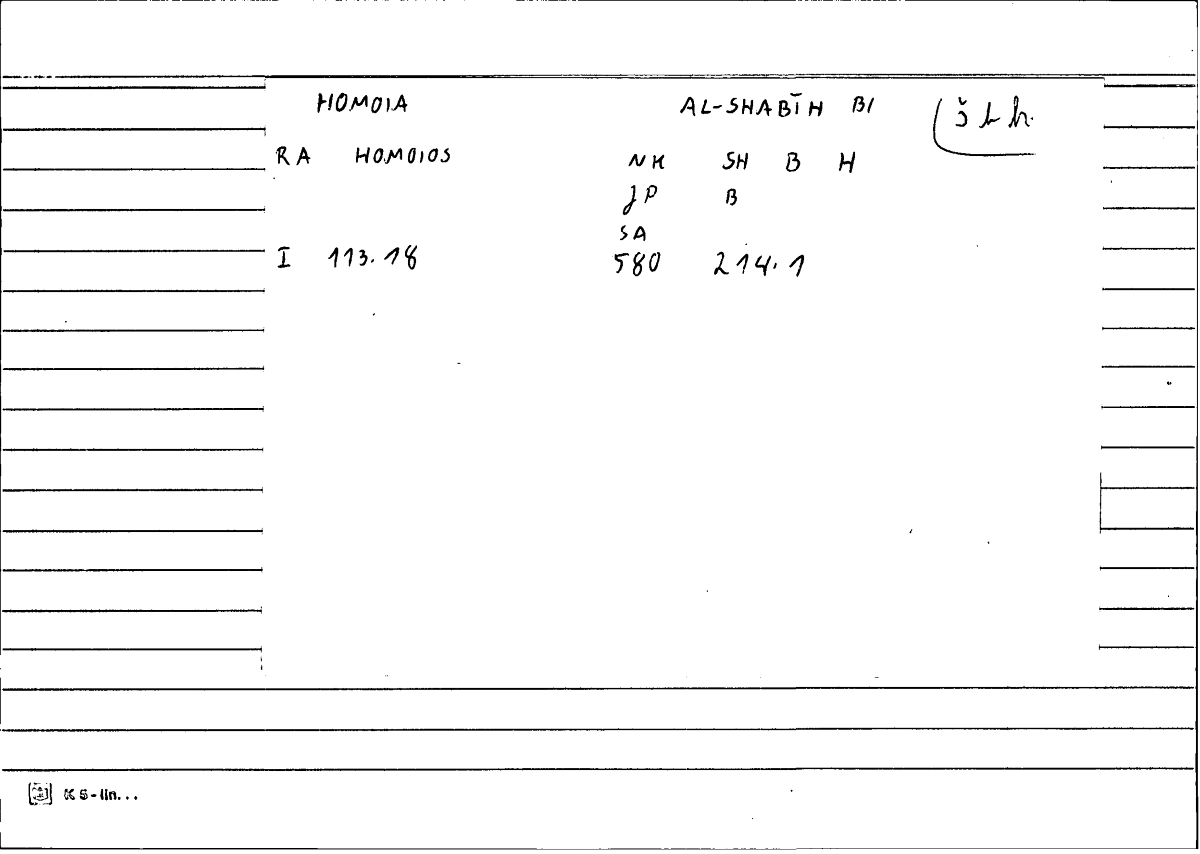 HOMOIA AL-SHABĪH BI šbh
RA HOMOIOS NK SH B H
JP B
SA
I 113.18 580 214.1
K 5-lin...